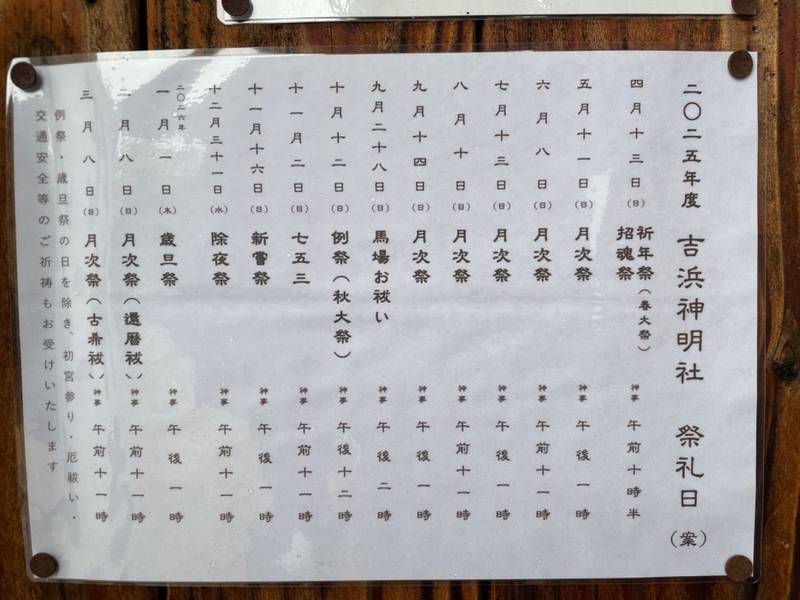 二〇二五年度 吉浜神明社 祭礼日(案)
四月十三日(日) 祈年祭(春大祭) 招魂祭 神事 午前十時半
五月十一日(日) 月次祭 神事 午後一時
六月八日(日) 月次祭 神事 午前十一時
七月十三日(日) 月次祭 神事 午後一時
八月十日(日) 月次祭 神事 午前十一時
九月十四日(日) 月次祭 神事 午後一時
九月二十八日(日) 馬場お祓い 神事 午後二時
十月十二日(日) 例祭(秋大祭) 神事 午後十二時
十一月二日(日) 七五三 神事 午前十一時
十一月十六日(日) 新嘗祭 神事 午後一時
十二月三十一日(水) 除夜祭 神事 午前十一時
二〇二六年
一月一日(木) 歳旦祭 神事 午後一時
二月八日(日) 月次祭(還暦祓い) 神事 午前十一時
三月八日(日) 月次祭(古希祓い) 神事 午前十一時
例祭・歳旦祭の日を除き、初宮参り・厄祓い・
交通安全等のご祈祷もお受けいたします